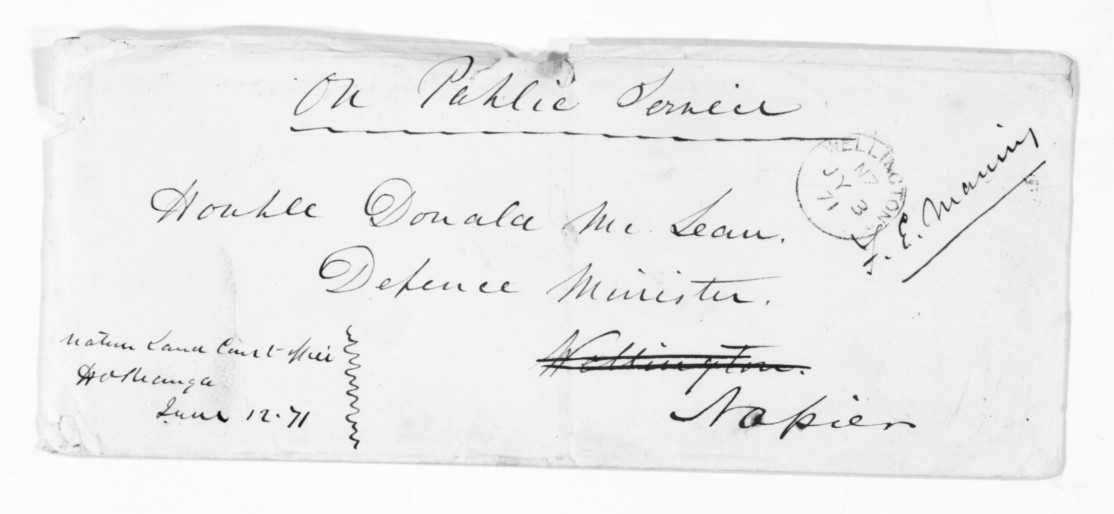 On Public Service
WELLINGTON
NZ
JY 3
71
F. E. Maning
Honble Donald McLean.
Defence Minister.
Wellington.
Napier
Native Land Court office
Hokianga
June 12.71